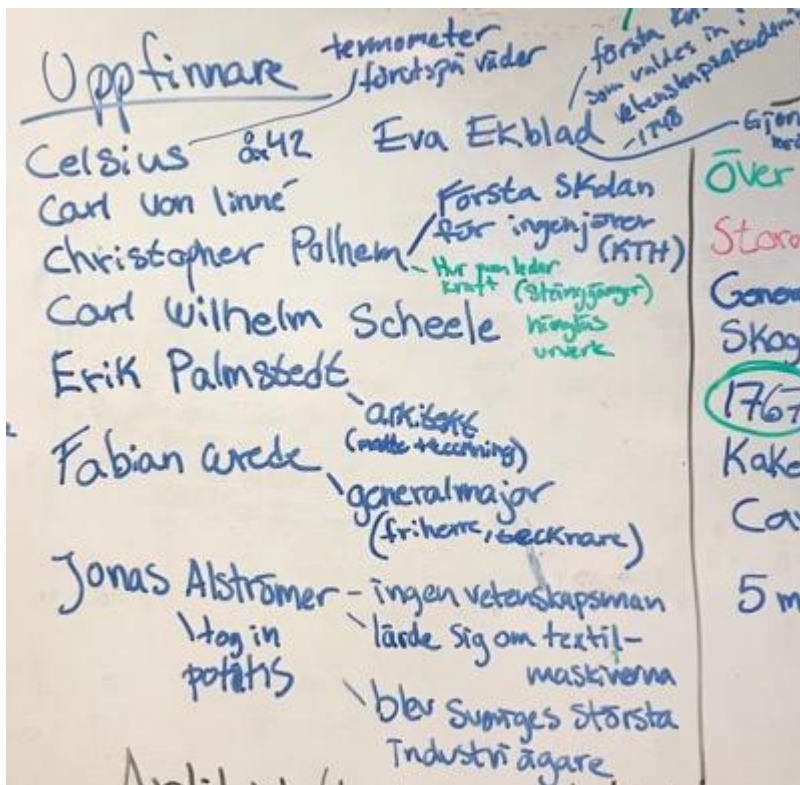 Uppfinnare
termometer
förutspå väder
Celsius år 42
Eva Ekblad
första
som valdes in i
vetenskapsakademin
-1748
Carl von linné
Christopher Polhem
Första Skolan
för ingenjörer
(KTH)
Hur man leder
kraft (Stånggångar)
hänglås
urverk
Carl Wilhelm Scheele
Erik Palmstedt
arkitekt
(matte + teckning)
Fabian wrede
generalmajor
(friherre, tecknare)
Jonas Alströmer - ingen vetenskapsman
tog in
potatis
lärde sig om textil-
maskinerna
blev Sveriges Största
industri ägare
Över
Skog
1767
5 m